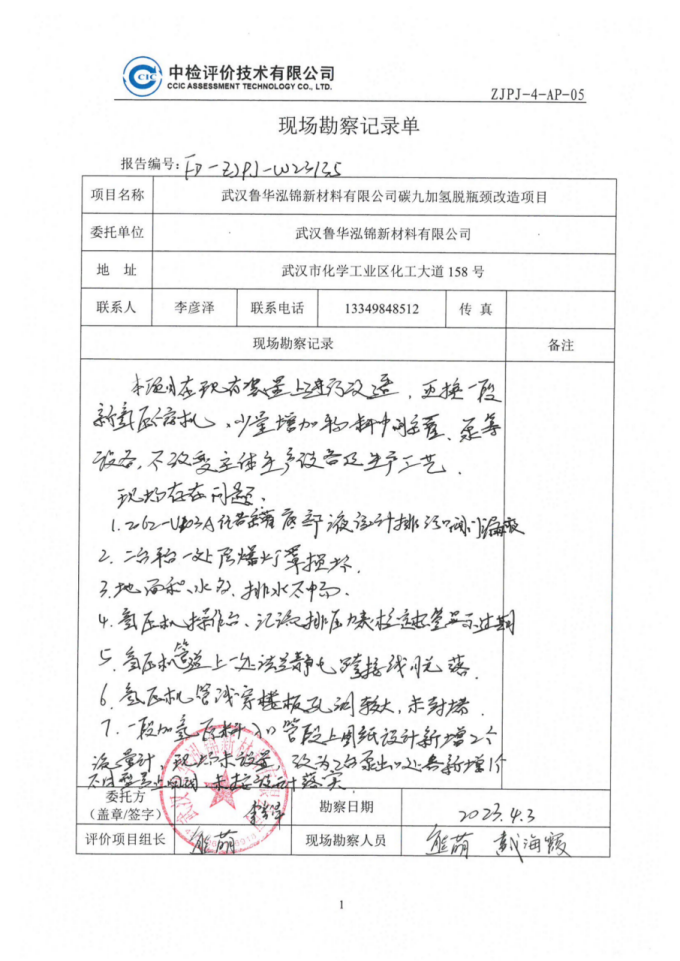 CCIC
中检评价技术有限公司
CCIC ASSESSMENT TECHNOLOGY CO., LTD.
ZJPJ-4-AP-05
现场勘察记录单
报告编号：FD-ZJPJ-W23135
项目名称 武汉鲁华泓锦新材料有限公司碳九加氢脱瓶颈改造项目
委托单位 武汉鲁华泓锦新材料有限公司
地 址 武汉市化学工业区化工大道 158 号
联系人 李彦泽 联系电话 13349848512 传 真
现场勘察记录 备注
本项目在现有装置上进行改造，更换一段
新氢压缩机、少量增加物料中间罐、泵等
设备，不改变主体生产设备及生产工艺．
现场存在问题．
底部液位计排污阀门
2. 二台平台一处防爆灯罩损坏．
3. 地面积水多，排水不畅．
4. 氢压机操作台、 排压力表检 过期
5. 氢压机管道上一处法兰静电跨接线脱落．
6. 氢压机管线穿楼板孔洞较大，未封堵．
7. 一段加氢原料入口管段上图纸设计新增2个
流量计，现场未设置，改为2台泵出口处各新增1个
不同型号 ，未按设计落实．
委托方
（盖章/签字） 勘察日期 2023.4.3
评价项目组长 熊萌 现场勘察人员 熊萌 戴海霞
1